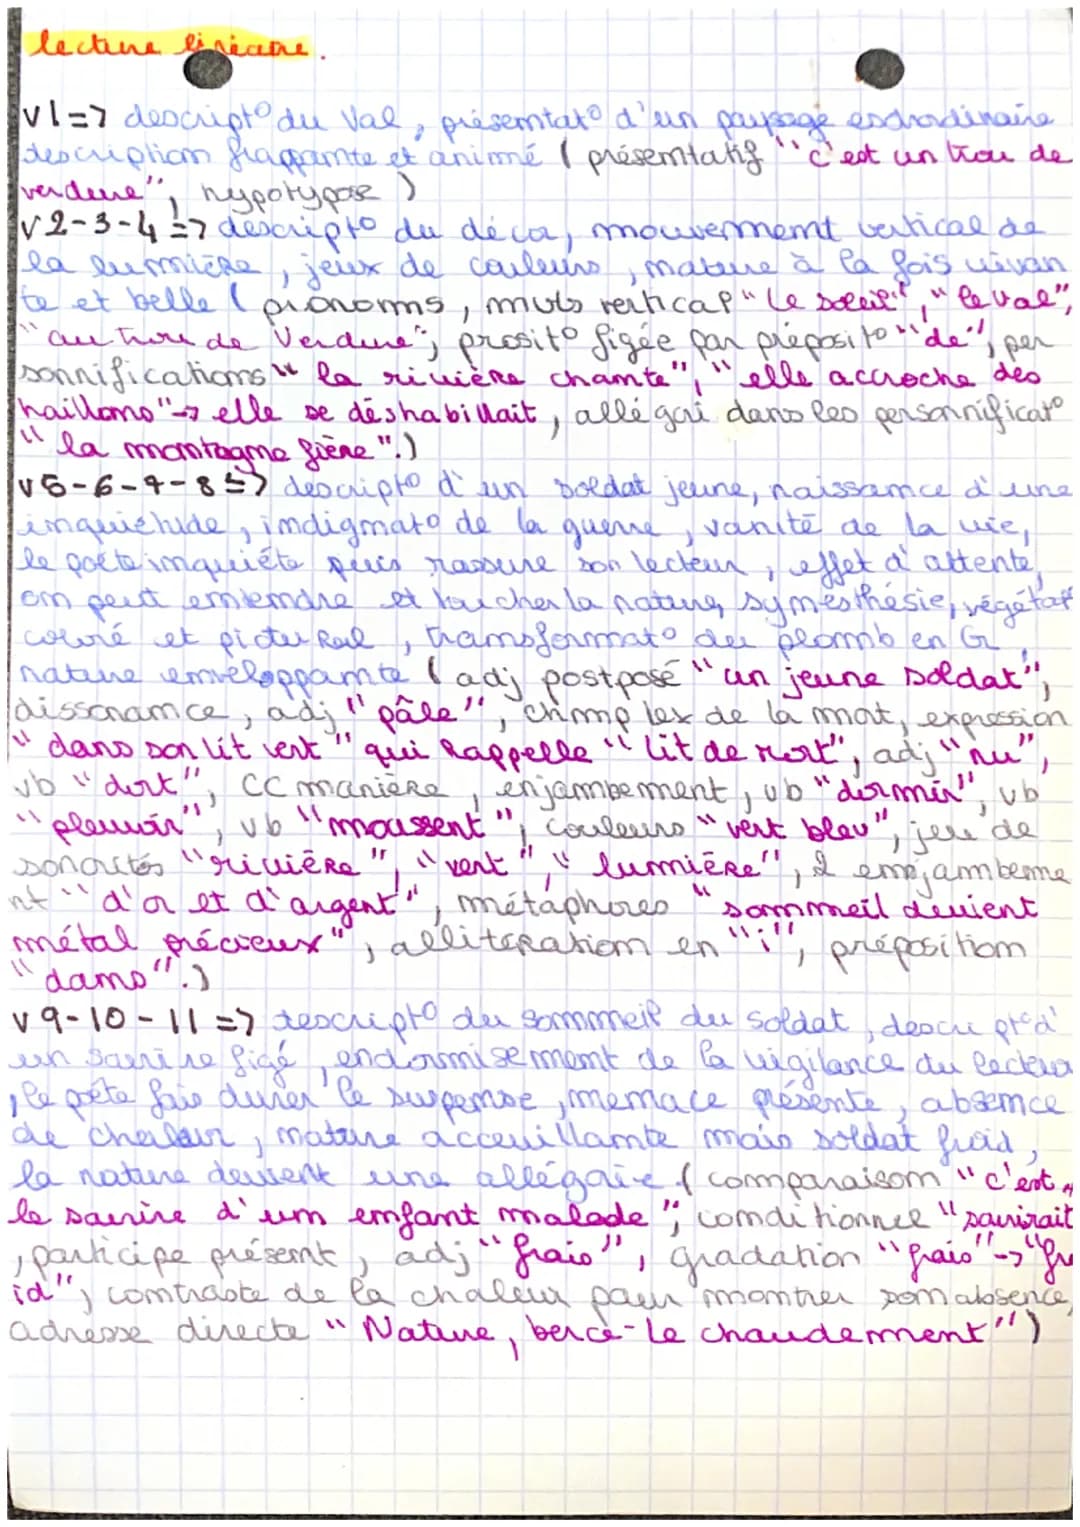 lecture linéaire.
v1=> descript° du Val, présentat° d'un paysage extraordinaire
description frappante et animé ( présentatif "c'est un trou de
verdure", hypotypose )
v2-3-4=> descript° du décor, mouvement vertical de
la lumière, jeux de couleurs, nature à la fois vivan
te et belle ( pronoms, mvts vertical "le soleil", "le val",
"au trou de verdure"; prosit° figée par préposit° "de", per
sonnifications "la rivière chante", "elle accroche des
haillons"-> elle se déshabillait, allégori dans les personnificat°
"la montagne fière".)
v5-6-7-8=> descript° d'un soldat jeune, naissance d'une
inquiétude, indignat° de la guerre, vanité de la vie,
le poète inquiéte puis rassure son lecteur, effet d'attente,
on peut entendre et toucher la nature, synesthésie, végétat°
coloré et pictural, transformat° du plomb en Or,
nature enveloppante ( adj postposé "un jeune soldat",
dissonance, adj "pâle", champ lex de la mort, expression
"dans son lit vert" qui rappelle "lit de mort", adj "nu",
vb "dort", CC manière, enjambement, vb "dormir", vb
"pleuvoir", vb "moussent", couleurs "vert bleu", jeu de
sonorités "rivière", "vert", "lumière", 2 enjambeme
nt "d'or et d'argent", métaphores "sommeil devient
métal précieux", allitération en "i", préposition
"dans".)
v9-10-11=> descript° du sommeil du soldat, descript° d'
un sourire figé, endormisement de la vigilance du lecteur
, le poète fais durer le suspense, menace présente, absence
de chaleur, nature acceuillante mais soldat froid,
la nature devient une allégorie ( comparaison "c'est
le sourire d'un enfant malade", conditionnel "sourirait
, participe présent, adj "frais", gradation "frais"-> "fro
id", contraste de la chaleur pour montrer son absence,
adresse directe "Nature, berce-le chaudement")